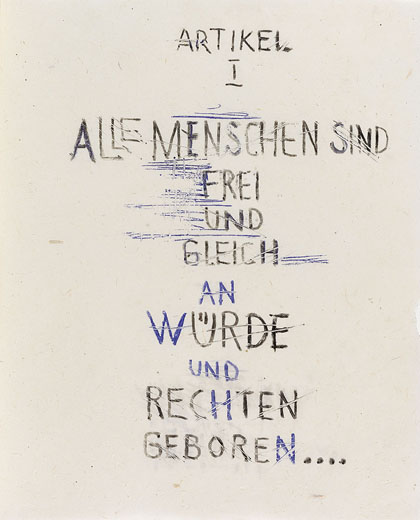 ARTIKEL
I
ALLE MENSCHEN SIND
FREI
UND
GLEICH
AN
WÜRDE
UND
RECHTEN
GEBOREN....